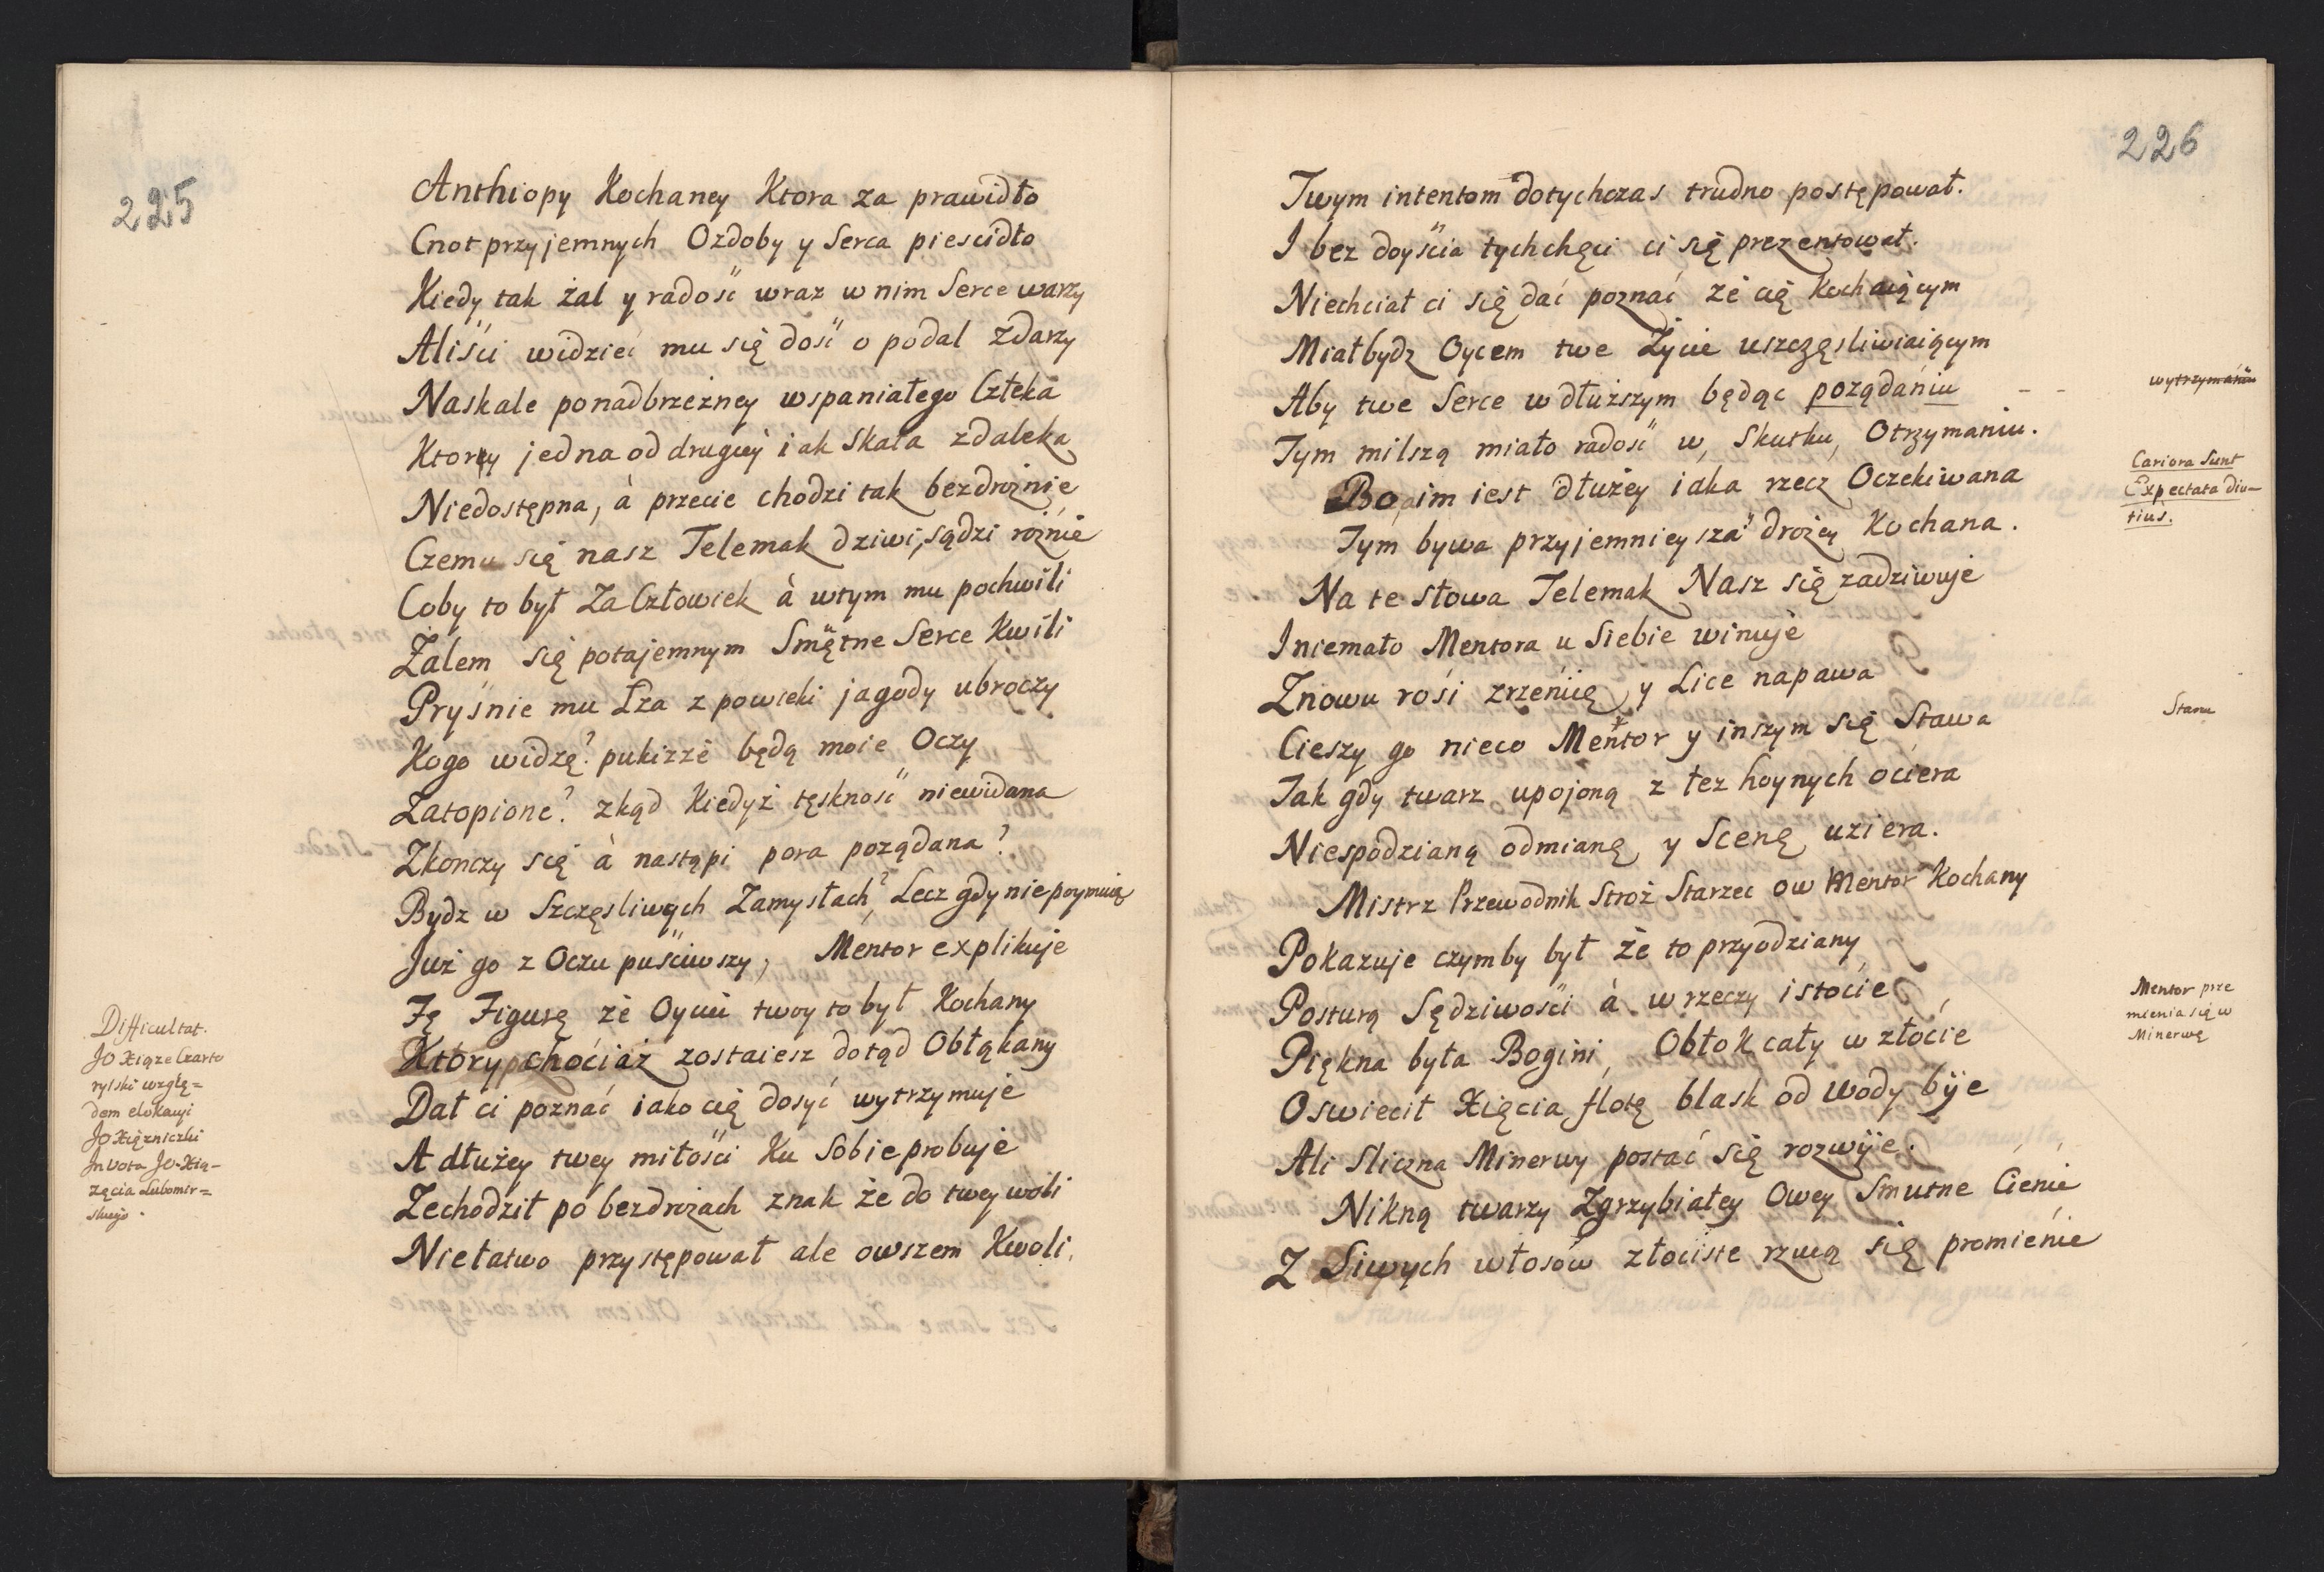 225
Anthiopy Kochaney Ktora za prawidło
Cnot przyjemnych Ozdoby y Serca piescidło
Kiedy tak żal y radość wraz w nim Serce warzy
Aliści widzieć mu się dość o podal zdarzy
Naskale ponadbrzeżney wspaniałego Człeka
Ktorey jedna od drugiey iak Skała zdaleka
Niedostępna, à przecie chodzi tak bezdrożnie
Czemu się nasz Telemak dziwi, sądzi rożnie
Coby to był Za Człowiek à wtym mu pochwili
Żalem się potajemnym Smętne Serce Kwili
Pryśnie mu Łza z powieki jagody ubroczy
Kogo widzę? pukizże będą moie Oczy
Zatopione? zkąd Kiedyż tęskność niewidana
Zkonczy się à nastąpi pora pożądana?
Bydz w Szczęsliwych Zamysłach? Lecz gdy niepoymuie
Już go z Oczu puściwszy, Mentor explikuje
Tę Figurę że Oyciec twoy to był Kochany
Ktory chociaż zostaiesz dotąd Obłąkany
Dał ci poznać iako cię dosyć wytrzymuje
A dłużey twey miłości Ku Sobie probuje
Zechodził po bezdrożach znak że do twey woli
Niełatwo przystępował ale owszem Kwoli
Difficultat.
JO Xiąże Czarto
ryiski wzglę=
dem elokacyi
JO Xiężniczki
In vota JO. Xią-
żęcia Lubomir=
skiego.
226
Twym intentom dotychczas trudno postępował.
I bez doyścia tych chęci ci się prezentował.
Niechciał ci się dać poznać że cię Kochaiącym
Miał bydz Oycem twe Życie uszczęsliwiaiącym
Aby twe Serce w dłuższym będąc pożądaniu - -
wytrzymaniu
Tym milszą miało radość w, Skutku, Otrzymaniu.
Bo im iest dłużey iaka rzecz Oczekiwana
Tym bywa przyjemnieysza drożey Kochana.
Cariora Sunt
Expectata diu-
tius.
Na te słowa Telemak Nasz się zadziwuje
I niemało Mentora u Siebie winuje
Znowu rosi zrzenicę y Lice napawa
Cieszy go nieco Mentor y inszym się Stawa
Stanu
Tak gdy twarz upojoną z łez hoynych ociera
Niespodzianą odmianę y Scenę uziera.
Mistrz Przewodnik Stroż Starzec ow Mentor Kochany
Pokazuje czymby był że to przyodziany
Posturą Sędziwości à w rzeczy istocie
Piękna była Bogini, Obłok cały w złocie
Mentor prze
mienia się w
Minerwę
Oswiecił Xięcia flotę blask od wody bije
Ali Sliczna Minerwy postać się rozwije.
Nikną twarzy Zgrzybiałey Owey Smutne Cienie
Z Siwych włosow złociste rzucą się promienie